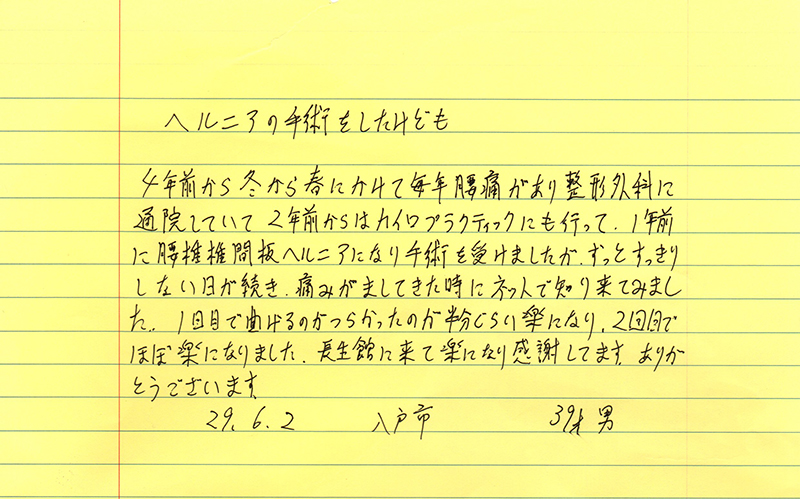 ヘルニアの手術をしたけども
4年前から冬から春にかけて毎年腰痛があり整形外科に
通院していて2年前からはカイロプラクティックにも行って、1年前
に腰椎椎間板ヘルニアになり手術を受けましたが、ずっとすっきり
しない日が続き、痛みがましてきた時にネットで知り来てみまし
た。1回目で曲げるのがつらかったのが半分くらい楽になり、2回目で
ほぼ楽になりました、長生館に来て楽になり感謝してます。ありが
とうございます。
29.6.2 八戸市 39才 男